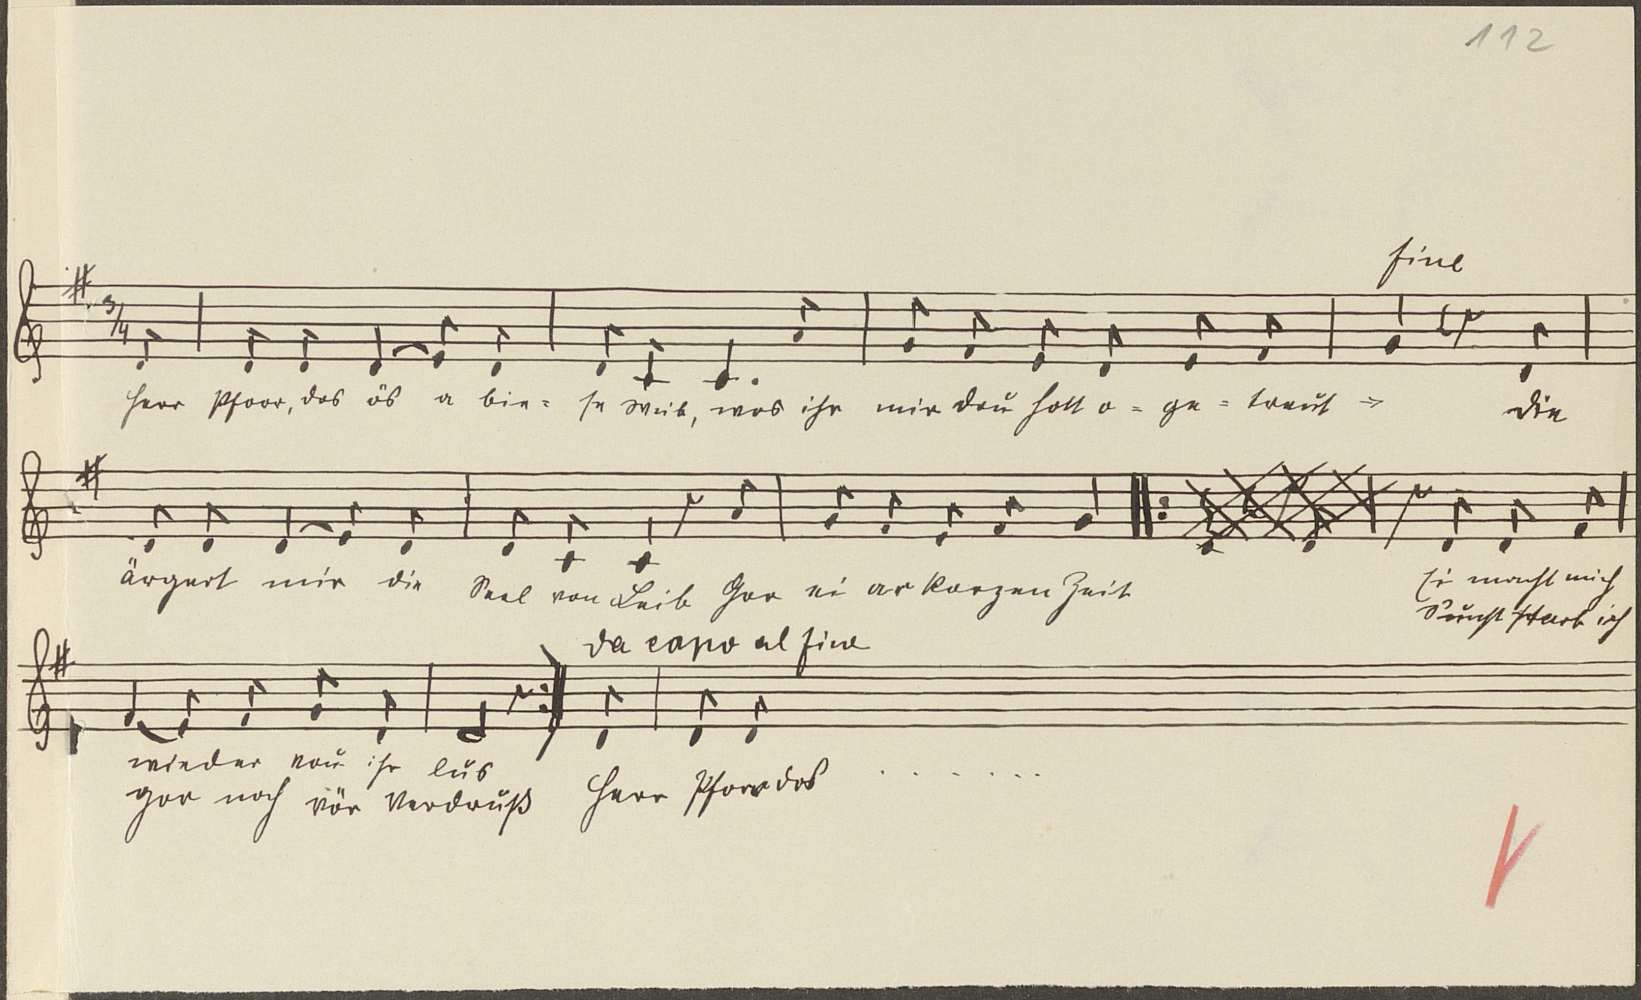 112
fine
3/4
Herr Pfoor, dos ös a bie= se Weib, wos ihr mir drü hott o = ge = traut die
ärgert mir die Seel von Leib Gor ei ar korzen Zeit
Ei macht mich
Sünst starb ich
da capo al fine
wieder vou ihr lus
gor noch vör Verdruß Herr Pfoor dos . . . . . . .